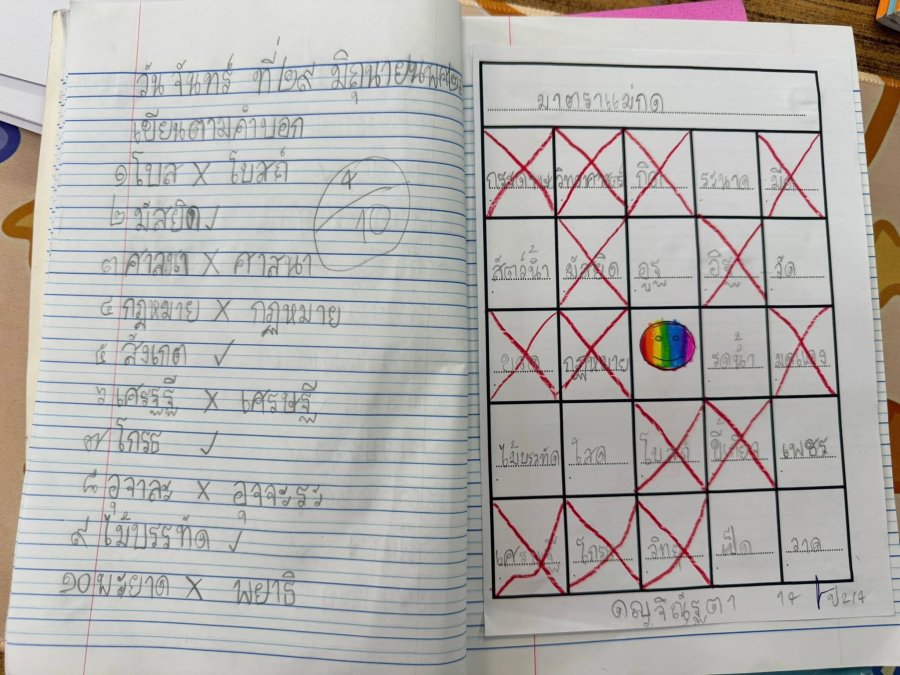 วันจันทร์ ที่ ๒๙ มิถุนายน
เขียนตามคำบอก
๑ โบส X โบสถ์
4
10
๒ มัสยิด ✓
๓ ศาลนา X ศาสนา
๔ กฎหมาย X กฎหมาย
๕ สังเกต ✓
๖ เศรรฐี X เศรษฐี
๗ โกรธ ✓
๘ อุจาละ X อุจจะระ
๙ ไม้บรรทัด ✓
๑๐ พะยาด X พยาธิ
มาตราแม่กด
กระดาษ วิทยาศาสตร์ กีต ระนาด มีด
สัตว์น้ำ มัสยิด อูฐ อิฐ วัด
ขวด กฎหมาย รดน้ำ มดแดง
ไม้บรรทัด ไสด โบสถ์ ขี้เกียจ เพชร
เศรษฐี โกรธ เป็ด วาด
14 ป2/4